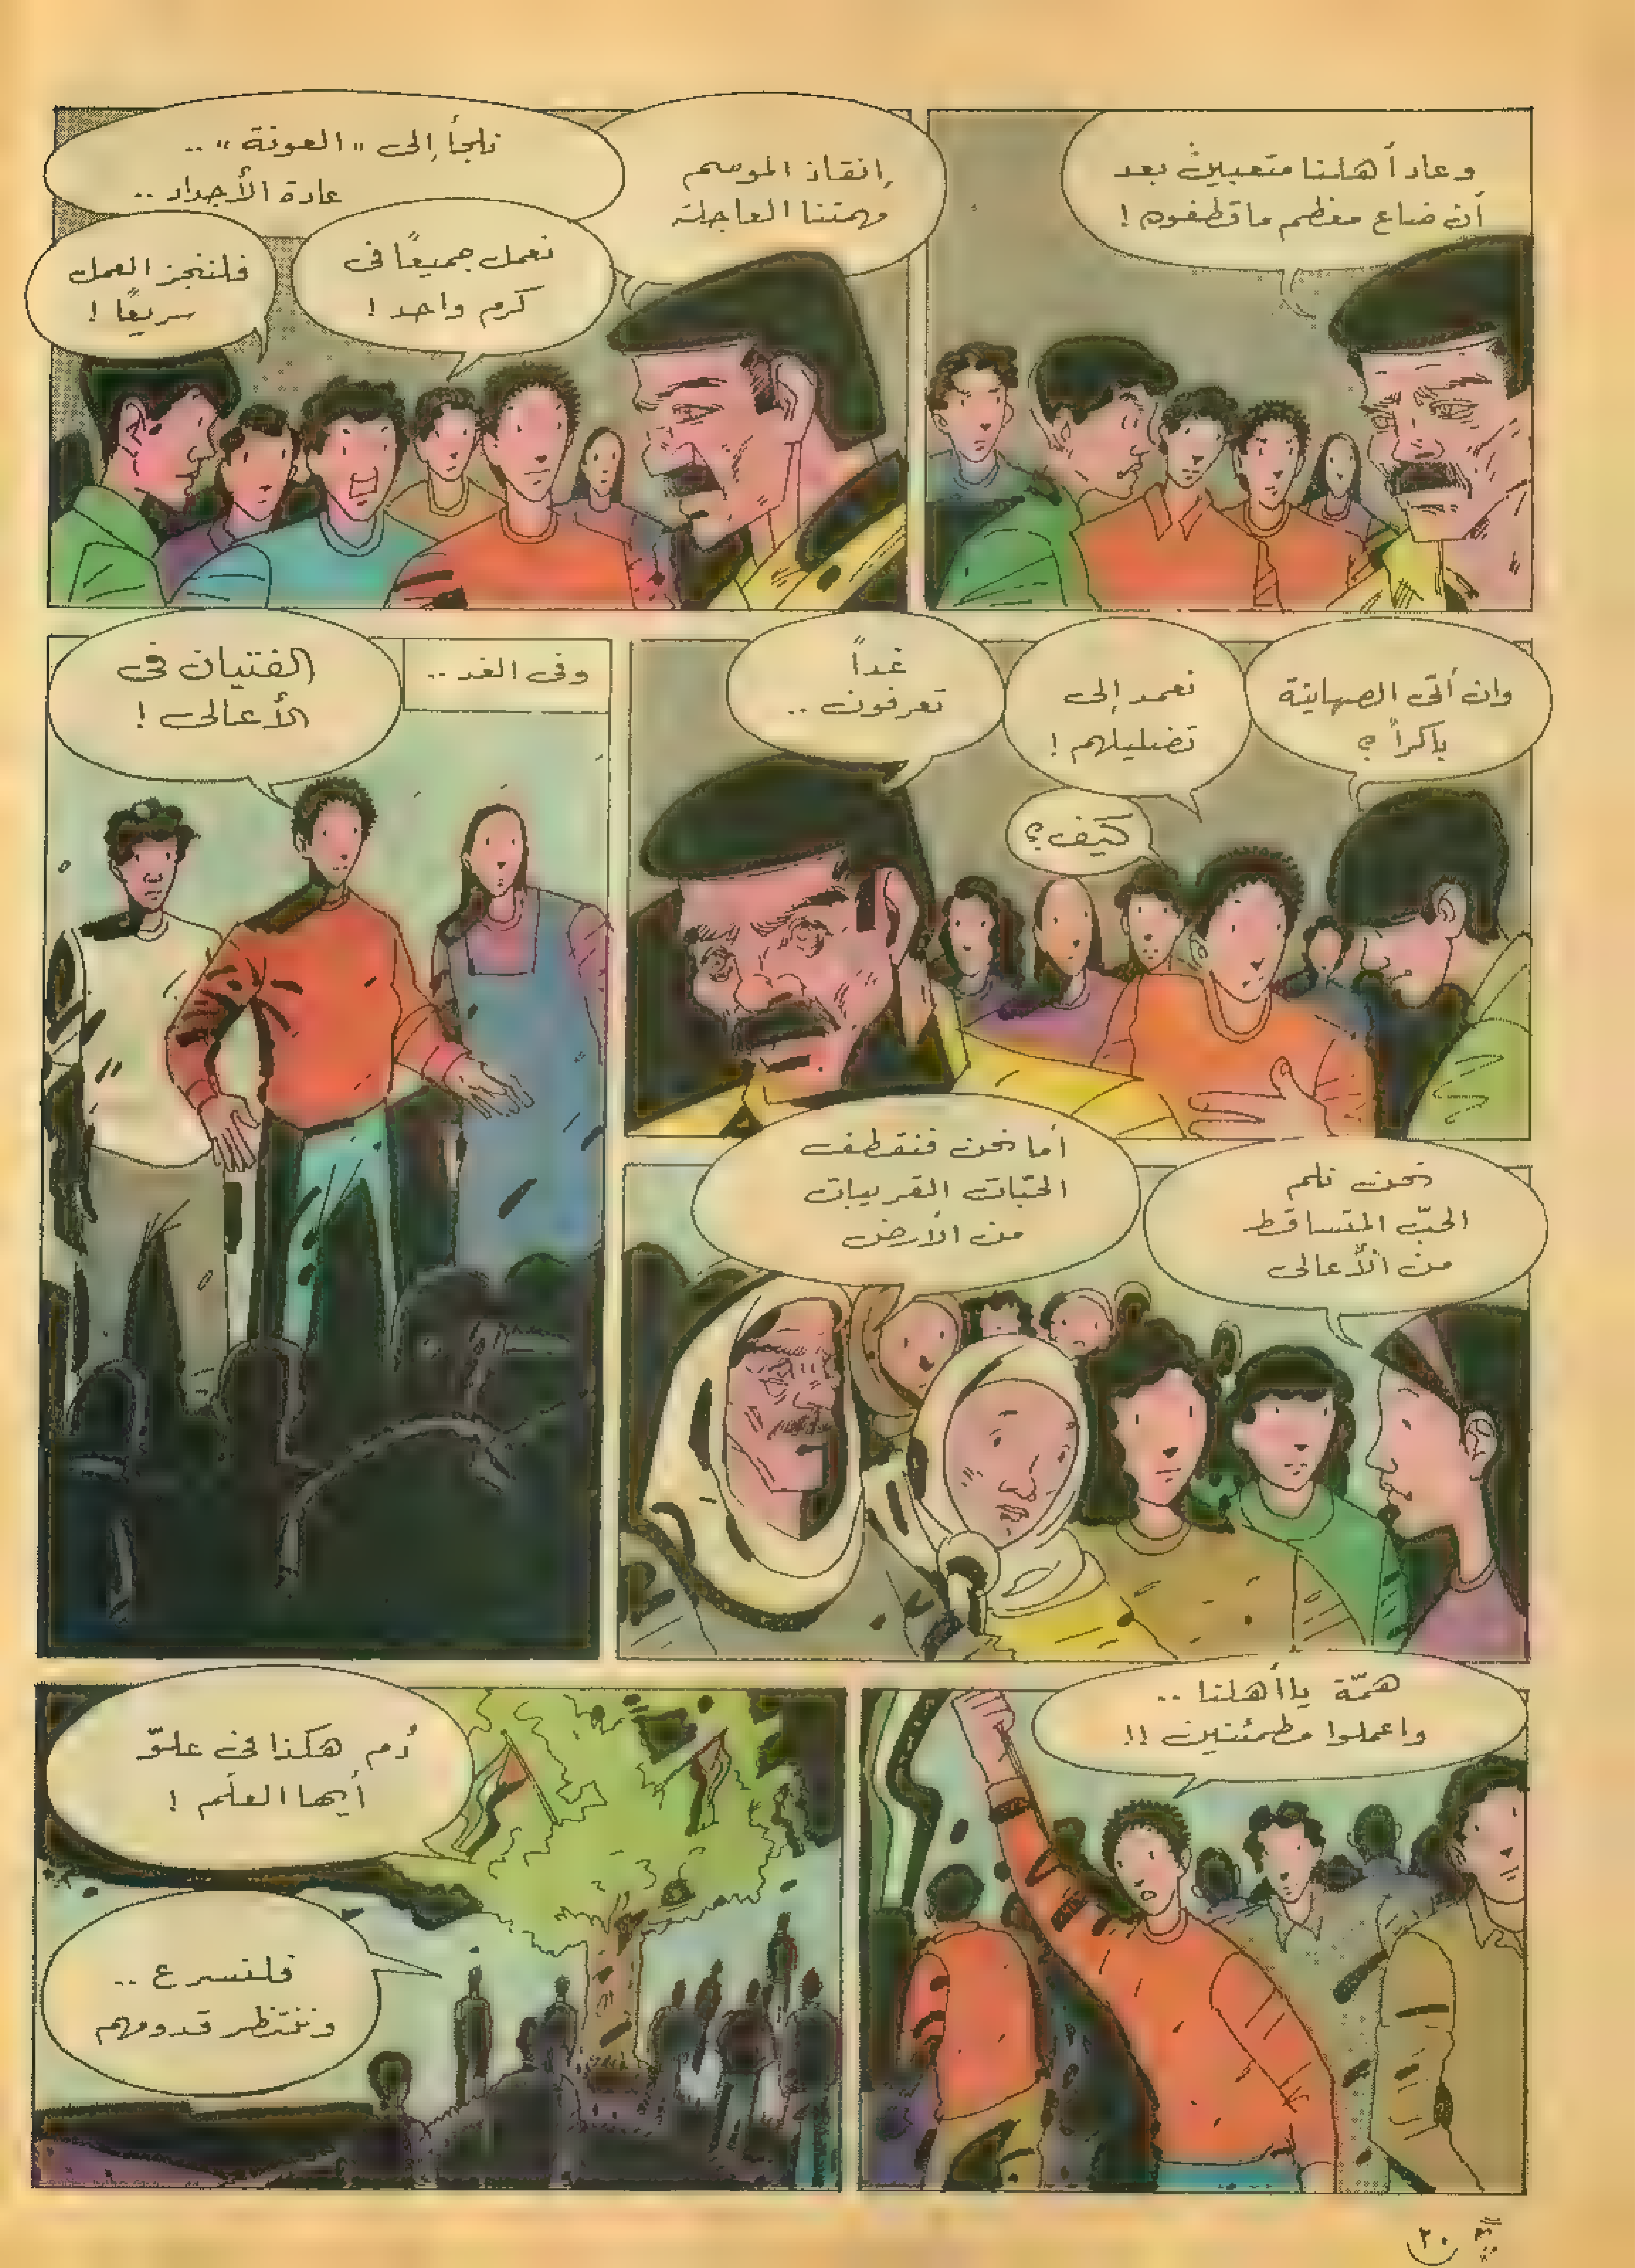 وعاد أهلنا متعبين بعد
أن ضاع معظم ما قطفوه !
إنقاذ الموسم
مهمتنا العاجلة
نلجأ إلى « العونة » ..
عادة الأجداد ..
نعمل جميعًا في
كرم واحد !
فلننجز العمل
سريعًا !
وان أتى الصهاينة
باكراً ؟
نعمد إلى
تضليلهم !
كيف؟
غداً
تعرفون ..
وفي الغد ..
الفتيان في
الأعالى !
نحن نلم
الحبّ المتساقط
من الأعالى
أما نحن فنقطف
الحبّات القريبات
من الأرض
همّة يا أهلنا ..
واعملوا مطمئنين !!
دُم هكذا في علوّ
أيها العلَم !
فلنسرع ..
وننتظر قدومهم
٢٠